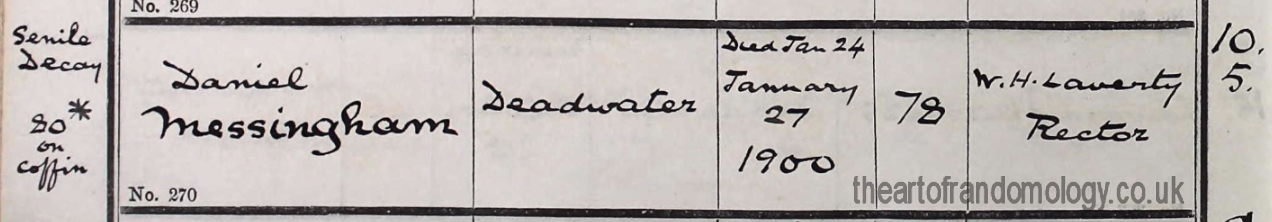 No. 269
Senile
Decay
80*
on
coffin
Daniel
Messingham
Deadwater
Died Jan 24
January
27
1900
78
W. H. Laverty
Rector
10.
5.
No. 270
theartofrandomology.co.uk